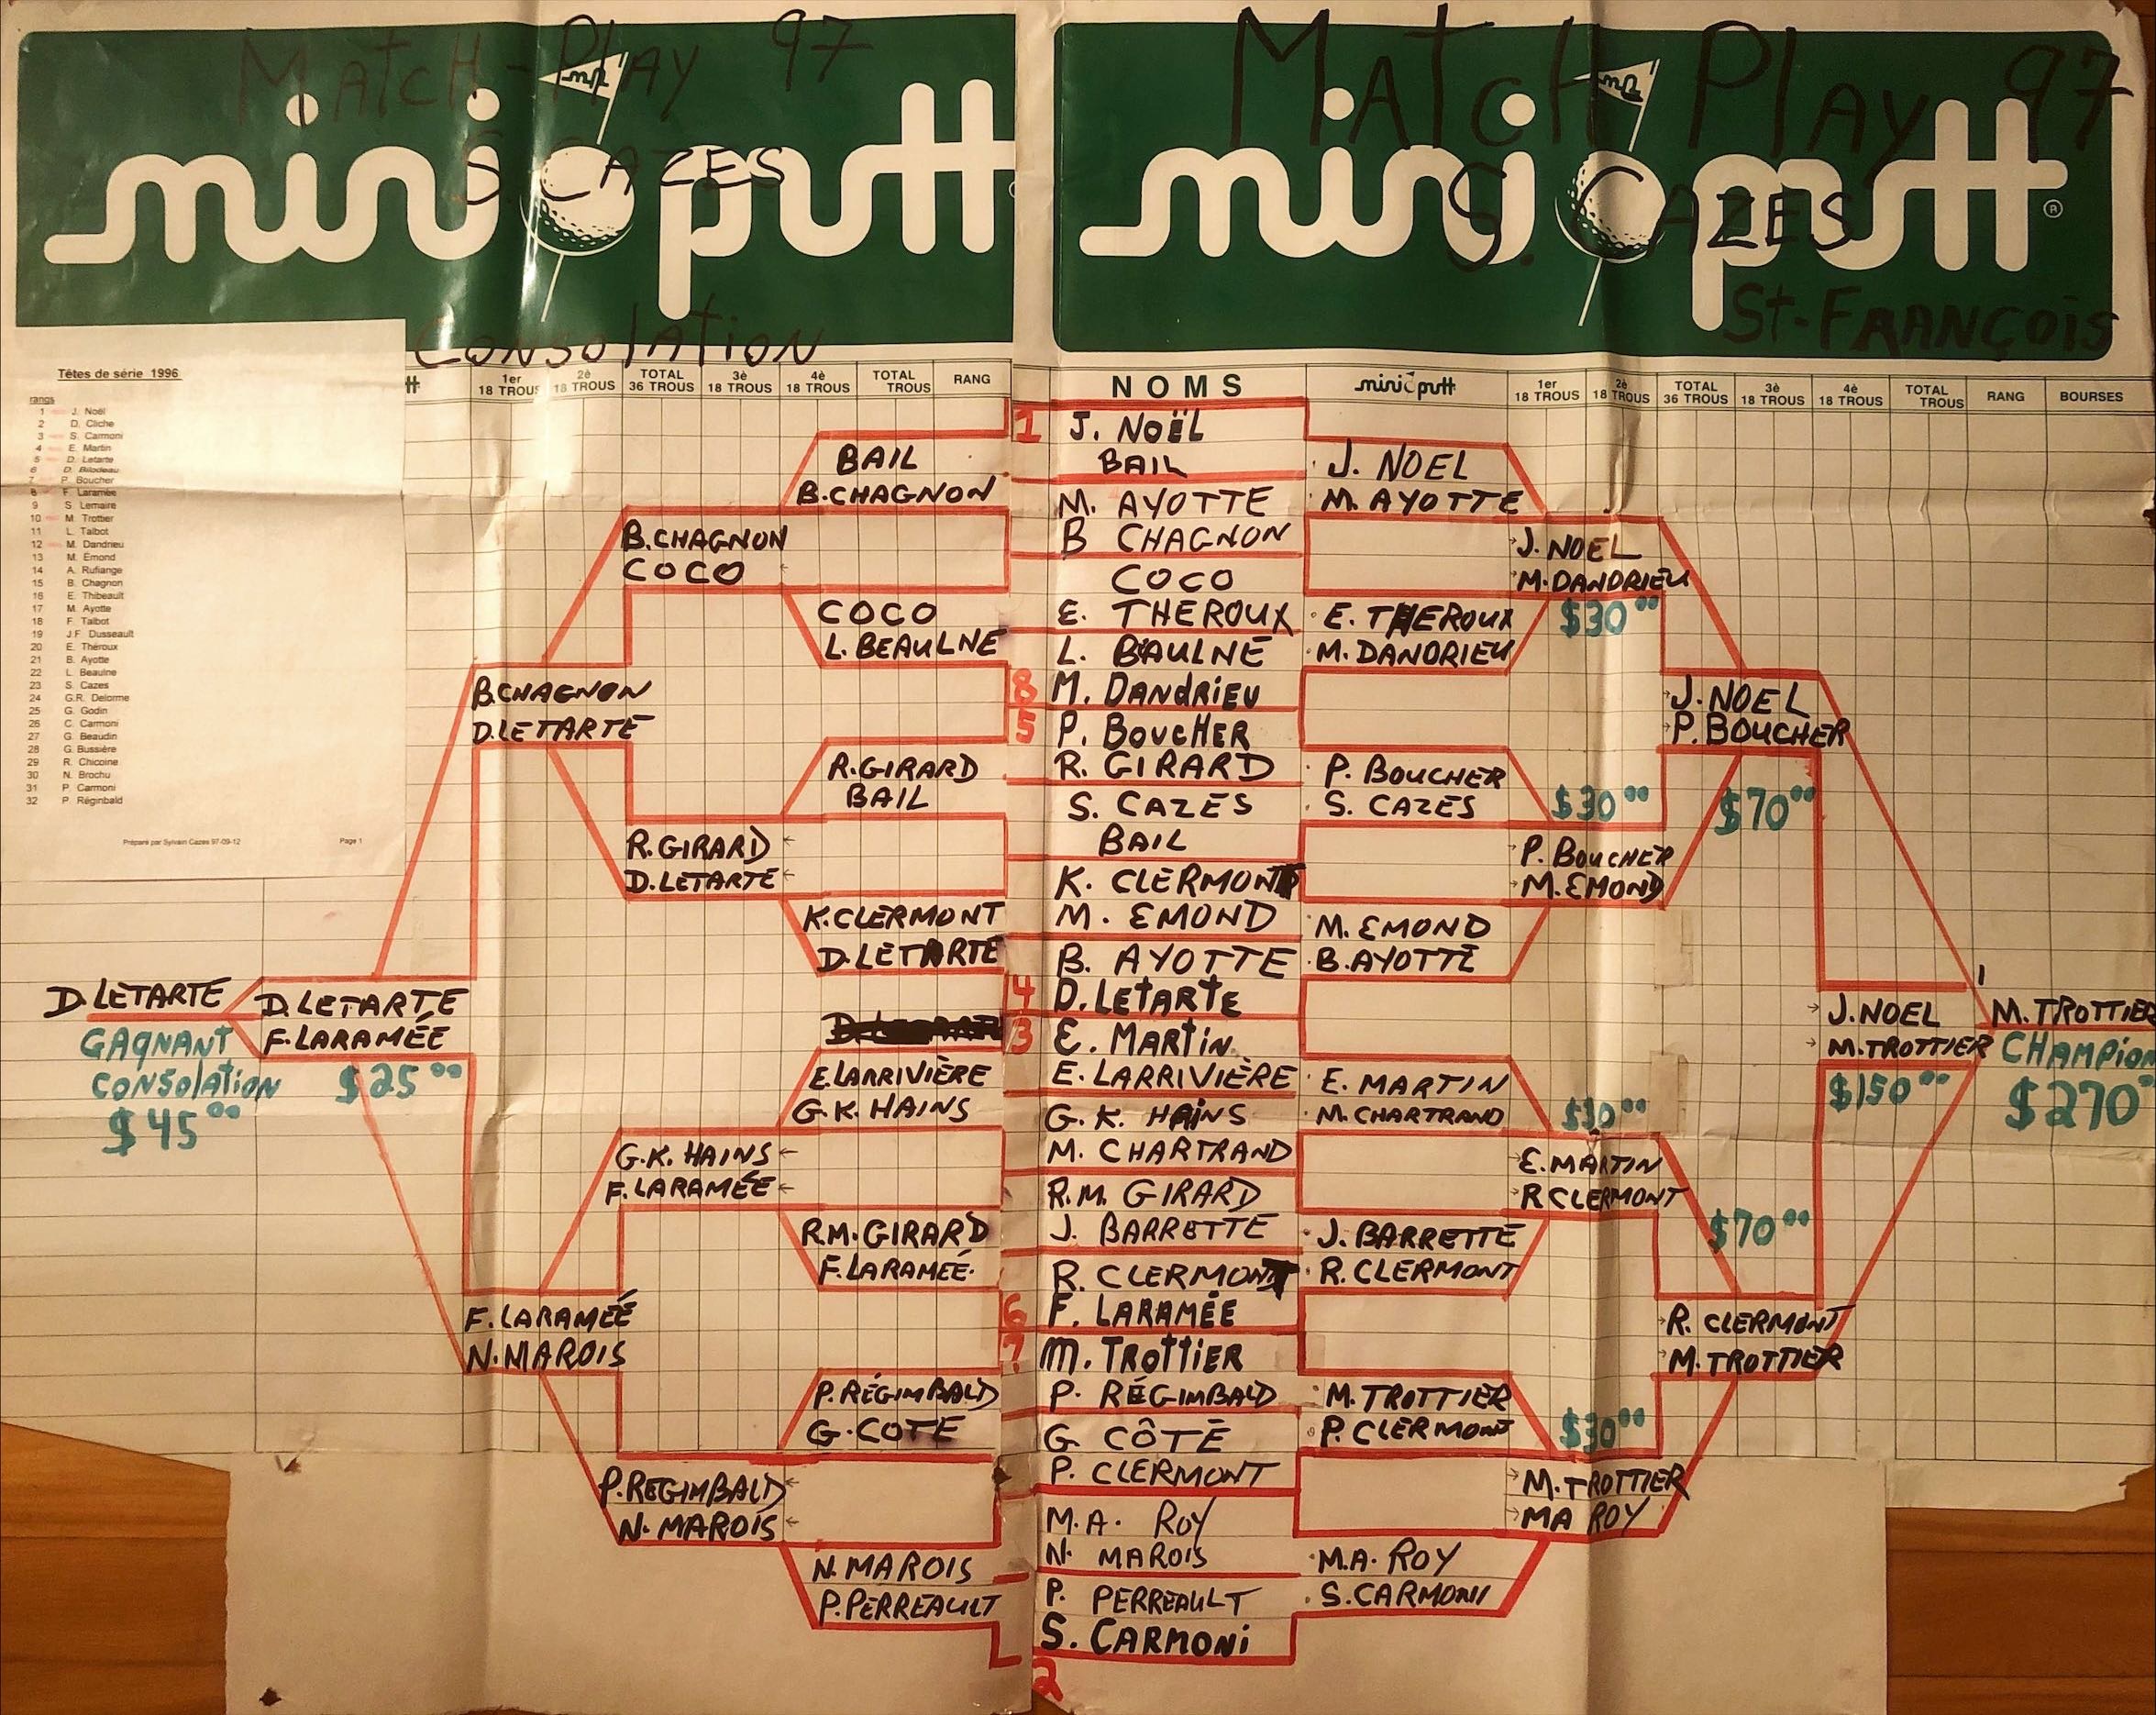 Match-Play 97
mini putt
S. CAZES
Consolation
Têtes de série 1996
rangs
1 J. Noël
2 D. Cliche
3 S. Carmoni
4 E. Martin
5 D. Letarte
6 D. Bilodeau
7 P. Boucher
8 F. Laramée
9 S. Lemaire
10 M. Trottier
11 L. Talbot
12 M. Dandrieu
13 M. Émond
14 A. Rufiange
15 B. Chagnon
16 E. Thibeault
17 M. Ayotte
18 F. Talbot
19 J.F. Dusseault
20 E. Théroux
21 B. Ayotte
22 L. Beaulne
23 S. Cazes
24 G.R. Delorme
25 G. Godin
26 C. Carmoni
27 G. Beaudin
28 G. Bussière
29 R. Chicoine
30 N. Brochu
31 P. Carmoni
32 P. Réginbald
Préparé par Sylvain Cazes 97-09-12 Page 1
1er 18 TROUS
2è 18 TROUS
TOTAL 36 TROUS
3è 18 TROUS
4è 18 TROUS
TOTAL TROUS
RANG
BAIL
B.CHAGNON
B.CHAGNON
COCO
COCO
L. BEAULNE
B.CHAGNON
D.LETARTE
R.GIRARD
BAIL
R.GIRARD
D.LETARTE
K.CLERMONT
D.LETARTE
D.LETARTE
GAGNANT
CONSOLATION
$45.00
D.LETARTE
F.LARAMÉE
$25.00
E.LARRIVIÈRE
G.K. HAINS
G.K. HAINS
F.LARAMÉE
R.M. GIRARD
F.LARAMÉE
F.LARAMÉE
N.MAROIS
P.RÉGIMBALD
G.COTE
P.REGIMBALD
N. MAROIS
N. MAROIS
P.PERREAULT
Match Play 97
mini putt
®
S. CAZES
St-FRANÇOIS
NOMS
mini putt
1er 18 TROUS
2è 18 TROUS
TOTAL 36 TROUS
3è 18 TROUS
4è 18 TROUS
TOTAL TROUS
RANG
BOURSES
1 J. NOËL
BAIL
M. AYOTTE
B CHAGNON
COCO
E. THEROUX
L. BAULNE
8 M. DANDRIEU
5 P. BOUCHER
R. GIRARD
S. CAZES
BAIL
K. CLERMONT
M. EMOND
B. AYOTTE
4 D. LETARTE
3 E. MARTIN
E. LARRIVIÈRE
G. K. HAINS
M. CHARTRAND
R.M. GIRARD
J. BARRETTE
R. CLERMONT
6 F. LARAMÉE
7 M. TROTTIER
P. RÉGIMBALD
G CÔTÉ
P. CLERMONT
M.A. ROY
N. MAROIS
P. PERREAULT
S. CARMONI
2
J. NOEL
M. AYOTTE
E. THEROUX
M. DANDRIEU
P. BOUCHER
S. CAZES
M. EMOND
B.AYOTTE
E. MARTIN
M.CHARTRAND
J. BARRETTE
R. CLERMONT
M. TROTTIER
P.CLERMONT
M.A. ROY
S.CARMONI
J. NOEL
M.DANDRIEU
$30.00
$30.00
P. BOUCHER
M. EMOND
$30.00
E. MARTIN
R CLERMONT
$30.00
M. TROTTIER
MA ROY
J. NOEL
P. BOUCHER
$70.00
$70.00
R. CLERMONT
M. TROTTIER
J.NOEL
M.TROTTIER
$150.00
1
M. TROTTIER
CHAMPION
$270